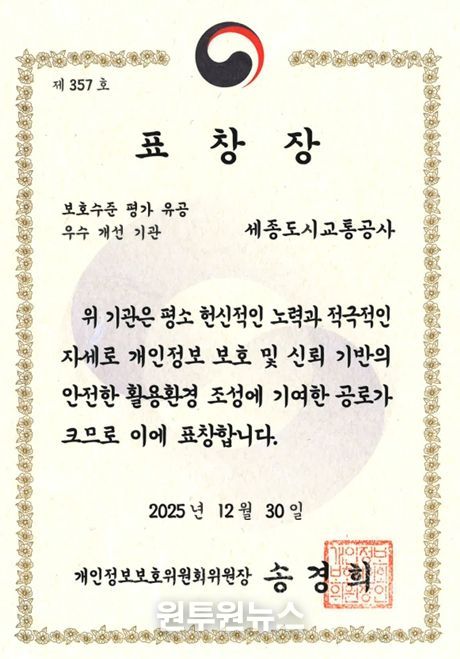 제 357 호
표 창 장
보호수준 평가 유공
우수 개선 기관 세종도시교통공사
위 기관은 평소 헌신적인 노력과 적극적인
자세로 개인정보 보호 및 신뢰 기반의
안전한 활용환경 조성에 기여한 공로가
크므로 이에 표창합니다.
2025년 12월 30일
개인정보보호위원회위원장 송경희
개인정보
보호위원회
위원장인
원투원뉴스